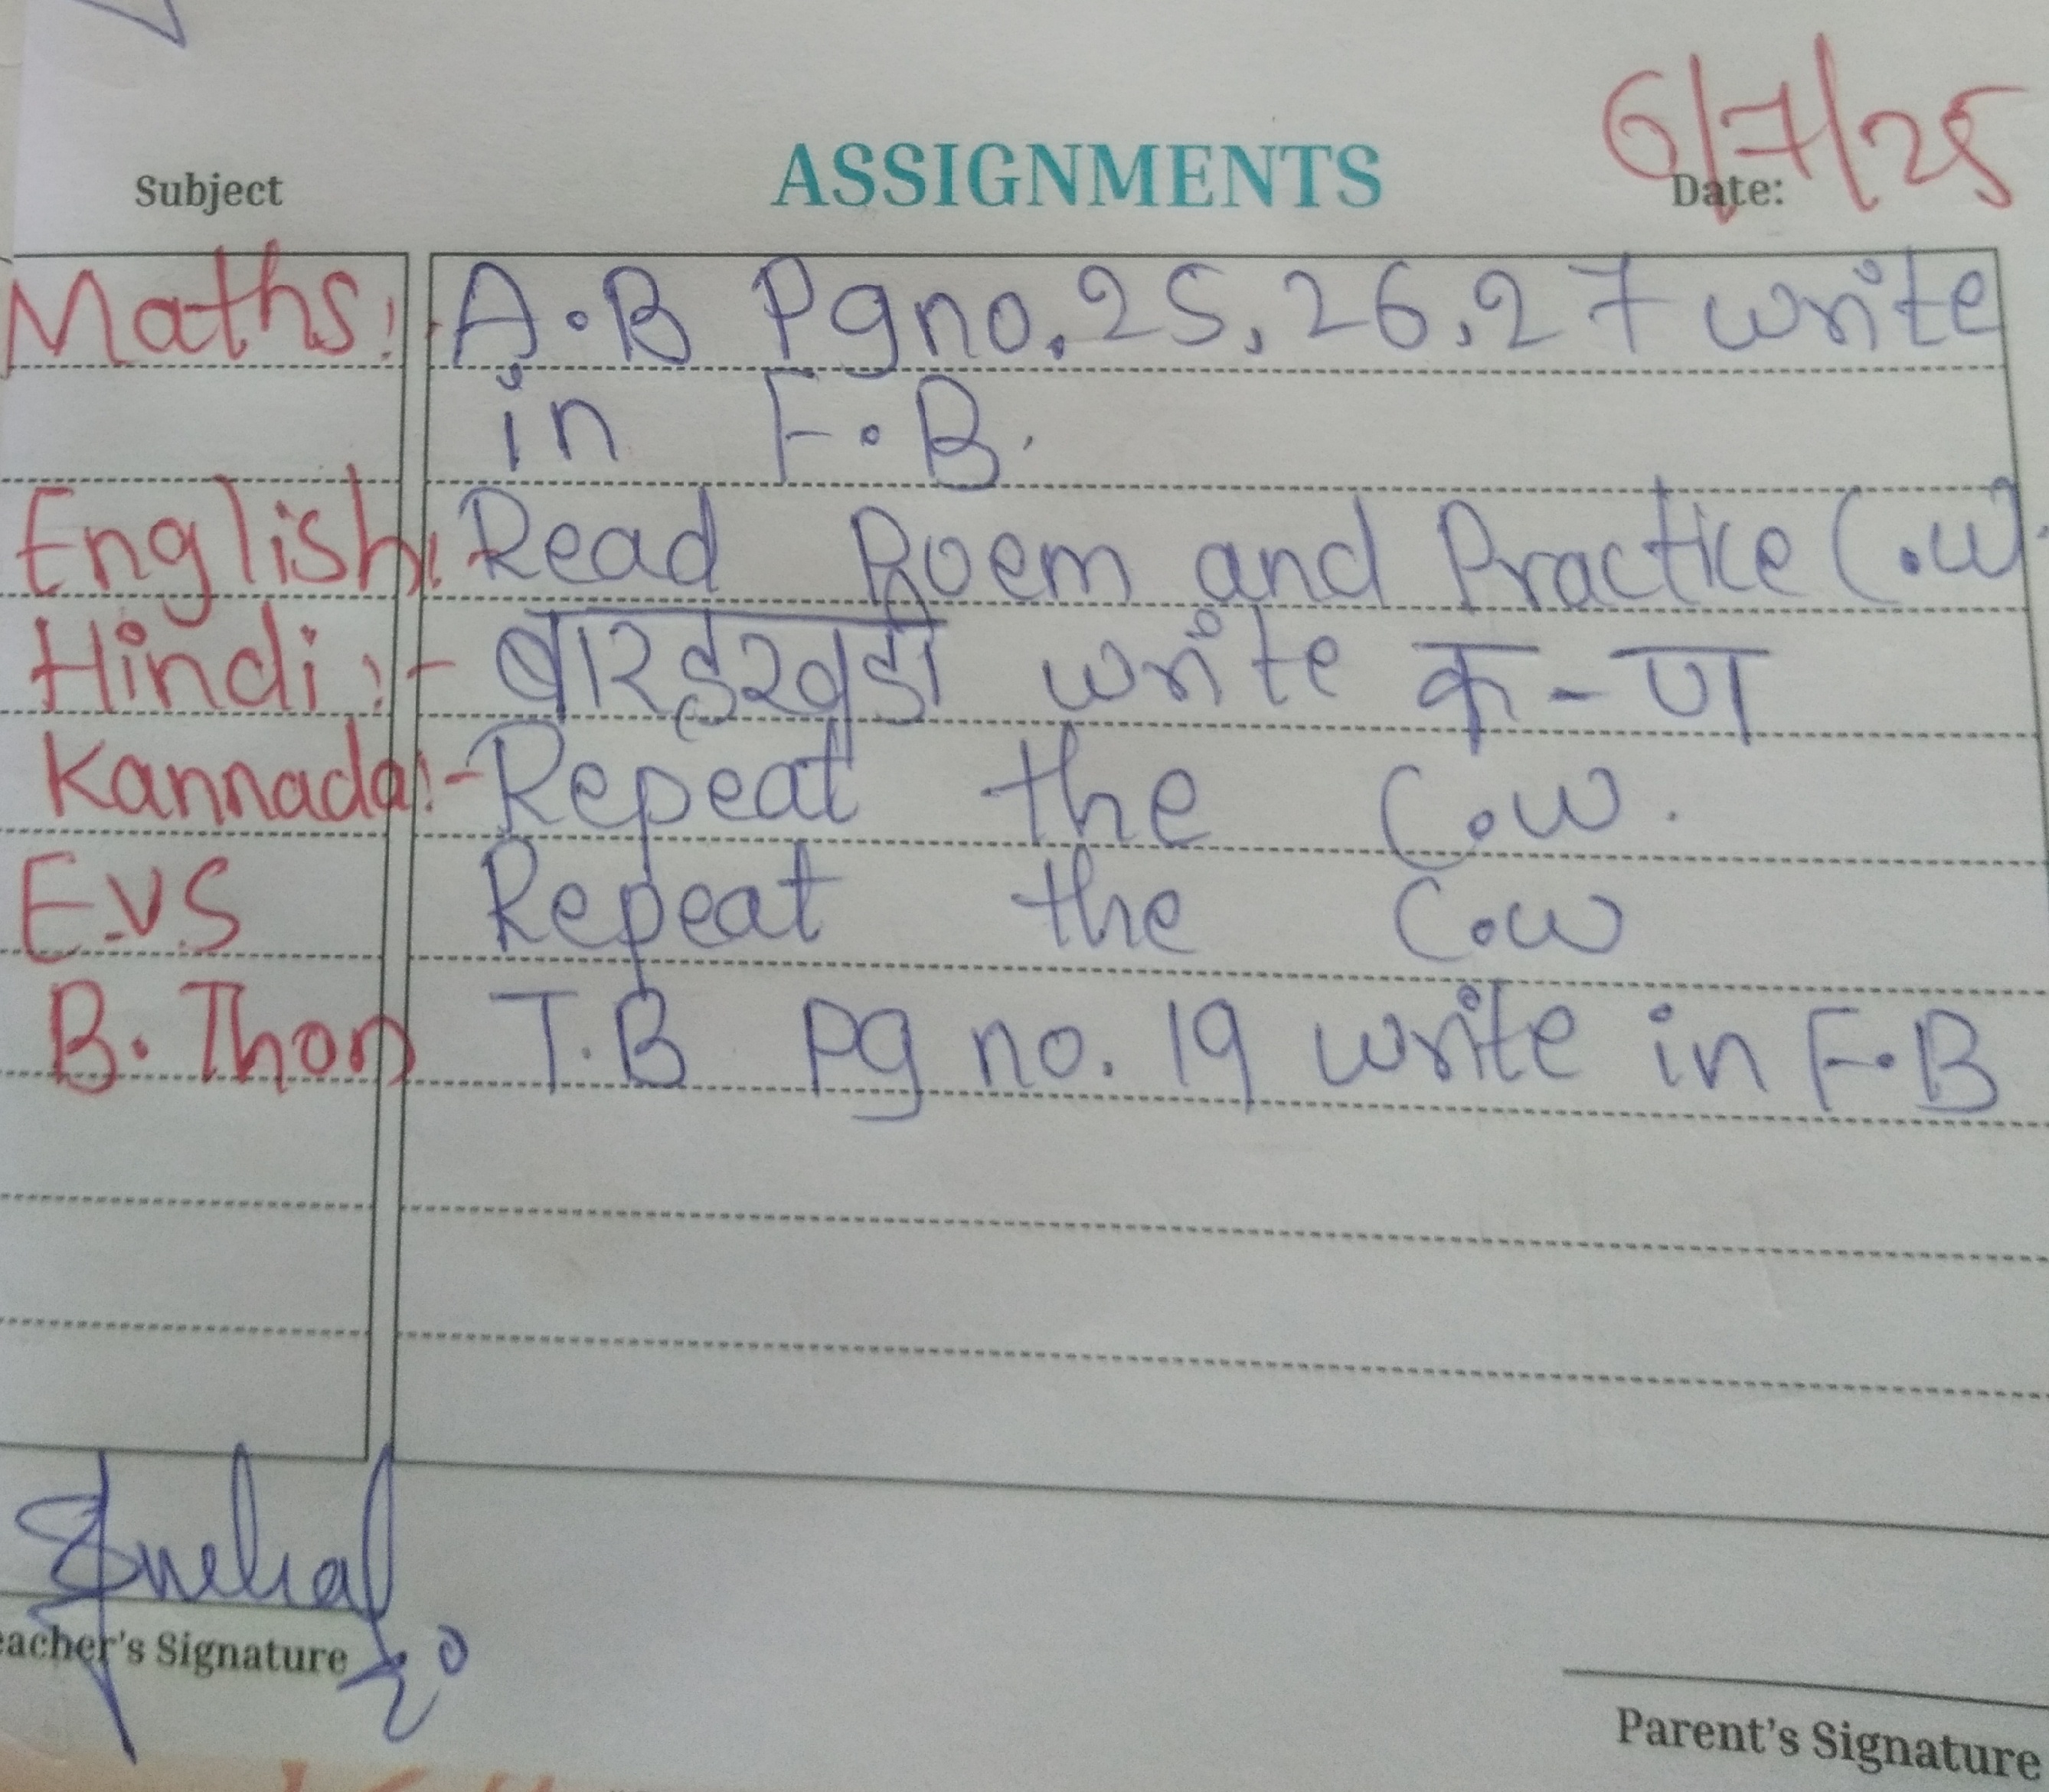 6/7/25
Subject ASSIGNMENTS Date:
Maths:- A.B Pg no. 25, 26, 27 write
in F.B.
English:- Read Poem and Practice C.W.
Hindi :- बारहखडी write क - ण
Kannada:- Repeat the C.W.
E.V.S Repeat the C.W
B. Thon T.B Pg no. 19 write in F.B
eacher's Signature
Parent's Signature